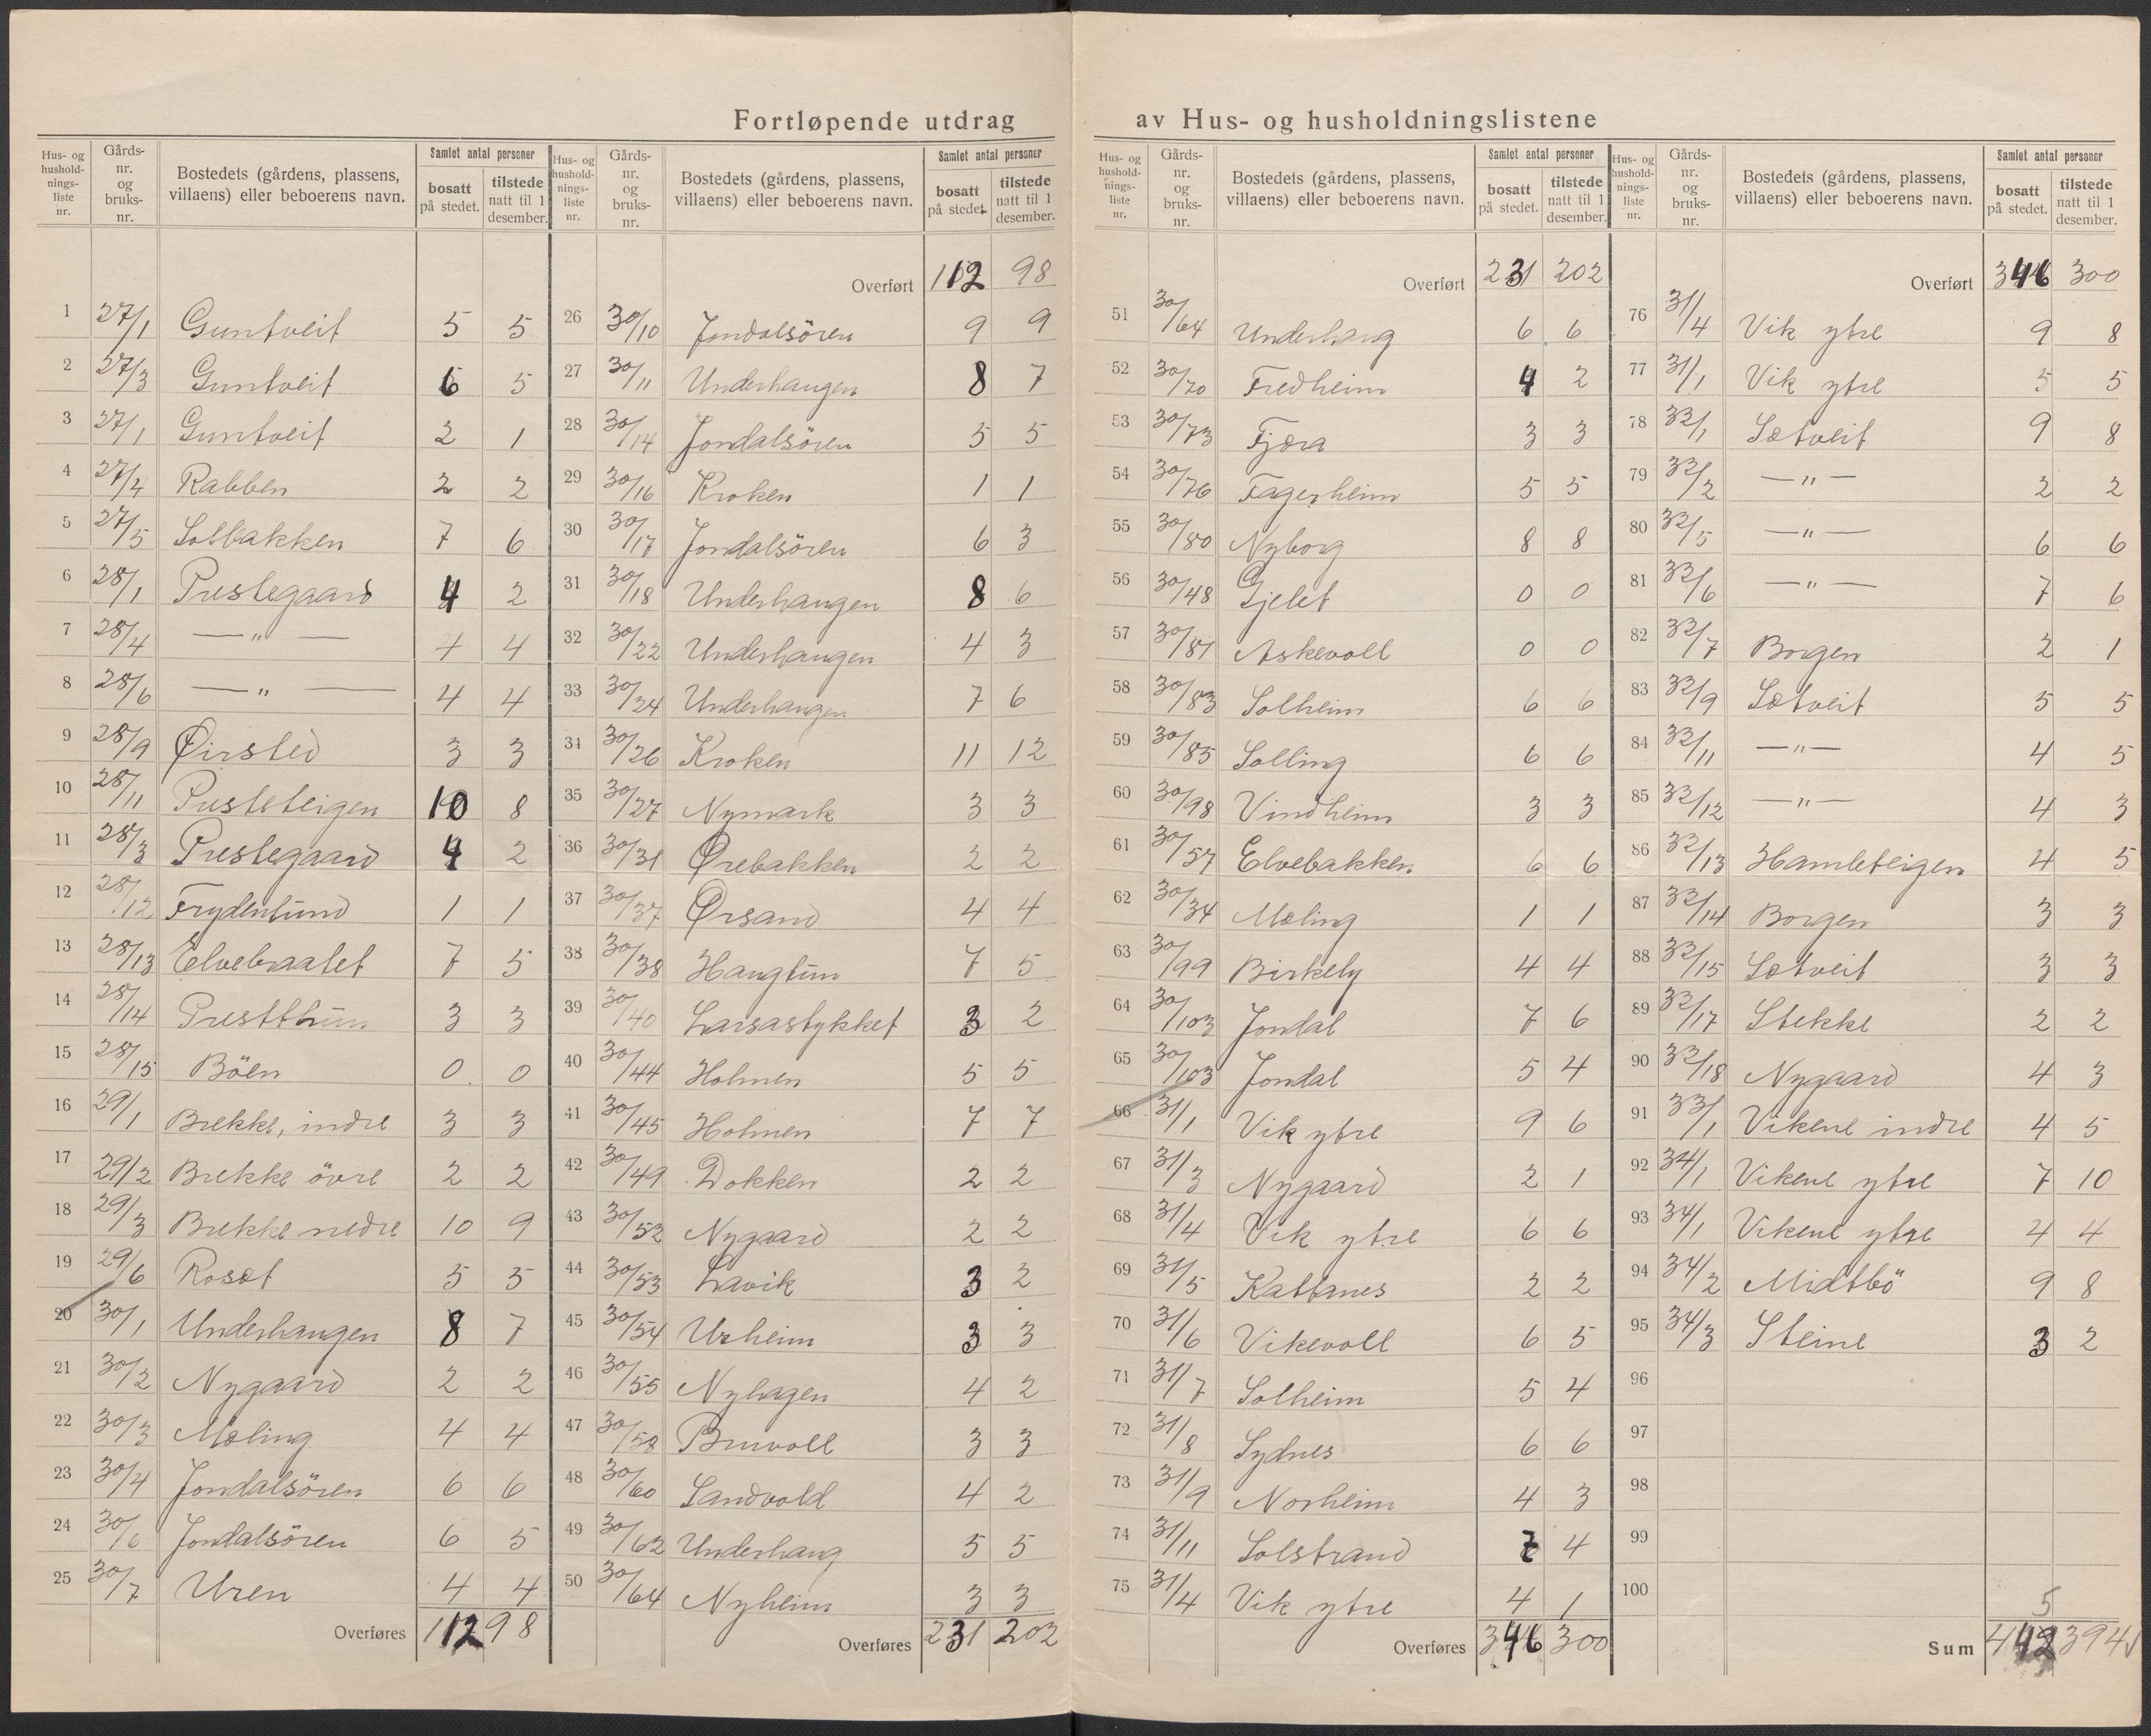 Fortløpende utdrag av Hus- og husholdningslistene
Hus- og husholdningsliste nr. | Gårds-nr. og bruks-nr. | Bostedets (gårdens, plassens, villaens) eller beboerens navn. | Samlet antal personer | bosatt på stedet. | tilstede natt til 1 desember.
1 27/1 Guntveit 5 5
2 27/3 Guntveit 6 5
3 27/1 Guntveit 2 1
4 27/4 Rabben 2 2
5 27/5 Solbakken 7 6
6 28/1 Prestegaard 4 2
7 28/4 —"— 4 4
8 28/6 —"— 4 4
9 28/9 Øirsted 3 3
10 28/11 Presteteigen 10 8
11 28/3 Prestegaard 4 2
12 28/12 Frydenlund 1 1
13 28/13 Elvebraatet 7 5
14 28/14 Prestthun 3 3
15 28/15 Böen 0 0
16 29/1 Brekke, indre 3 3
17 29/2 Brekke övre 2 2
18 29/3 Brekke nedre 10 9
19 29/6 Roset 5 5
20 30/1 Underhaugen 8 7
21 30/2 Nygaard 2 2
22 30/3 Mæling 4 4
23 30/4 Jondalsören 6 6
24 30/6 Jondalsören 6 5
25 30/7 Uren 4 4
Overføres 112 98
Hus- og husholdningsliste nr. | Gårds-nr. og bruks-nr. | Bostedets (gårdens, plassens, villaens) eller beboerens navn. | Samlet antal personer | bosatt på stedet. | tilstede natt til 1 desember.
Overført 112 98
26 30/10 Jondalsören 9 9
27 30/11 Underhaugen 8 7
28 30/14 Jondalsören 5 5
29 30/16 Kroken 1 1
30 30/17 Jondalsören 6 3
31 30/18 Underhaugen 8 6
32 30/22 Underhaugen 4 3
33 30/24 Underhaugen 7 6
34 30/26 Kroken 11 12
35 30/27 Nymark 3 3
36 30/31 Ørebakken 2 2
37 30/37 Ørsand 4 4
38 30/38 Haugtun 7 5
39 30/40 Larsastykket 3 2
40 30/44 Holmen 5 5
41 30/45 Holmen 7 7
42 30/49 Dokken 2 2
43 30/52 Nygaard 2 2
44 30/53 Lavik 3 2
45 30/54 Urheim 3 3
46 30/55 Nyhagen 4 2
47 30/58 Bruvoll 3 3
48 30/60 Sandvold 4 2
49 30/62 Underhaug 5 5
50 30/64 Nyheim 3 3
Overføres 231 202
Hus- og husholdningsliste nr. | Gårds-nr. og bruks-nr. | Bostedets (gårdens, plassens, villaens) eller beboerens navn. | Samlet antal personer | bosatt på stedet. | tilstede natt til 1 desember.
Overført 231 202
51 30/64 Underhaug 6 6
52 30/70 Fredheim 4 2
53 30/73 Fjæra 3 3
54 30/76 Fagerheim 5 5
55 30/80 Nyborg 8 8
56 30/48 Gjelet 0 0
57 30/81 Askevoll 0 0
58 30/83 Solheim 6 6
59 30/85 Solling 6 6
60 30/98 Vindheim 3 3
61 30/57 Elvebakken 6 6
62 30/34 Mæling 1 1
63 30/99 Birkely 4 4
64 30/103 Jondal 7 6
65 30/103 Jondal 5 4
66 31/1 Vik ytre 9 6
67 31/3 Nygaard 2 1
68 31/4 Vik ytre 6 6
69 31/5 Kattanes 2 2
70 31/6 Vikevoll 6 5
71 31/7 Solheim 5 4
72 31/8 Sydnes 6 6
73 31/9 Norheim 4 3
74 31/11 Solstrand 7 4
75 31/4 Vik ytre 4 1
Overføres 346 300
Hus- og husholdningsliste nr. | Gårds-nr. og bruks-nr. | Bostedets (gårdens, plassens, villaens) eller beboerens navn. | Samlet antal personer | bosatt på stedet. | tilstede natt til 1 desember.
Overført 346 300
76 31/4 Vik ytre 9 8
77 31/1 Vik ytre 5 5
78 32/1 Sætveit 9 8
79 32/2 —"— 2 2
80 32/5 —"— 6 6
81 32/6 —"— 7 6
82 32/7 Borgen 2 1
83 32/9 Sætveit 5 5
84 32/11 —"— 4 5
85 32/12 —"— 4 3
86 32/13 Hamleteigen 4 5
87 32/14 Borgen 3 3
88 32/15 Sætveit 3 3
89 32/17 Stekke 2 2
90 32/18 Nygaard 4 3
91 33/1 Vikene indre 4 5
92 34/1 Vikene ytre 7 10
93 34/1 Vikene ytre 4 4
94 34/2 Midtbö 9 8
95 34/3 Steine 3 2
96
97
98
99
100
5
Sum 442 394